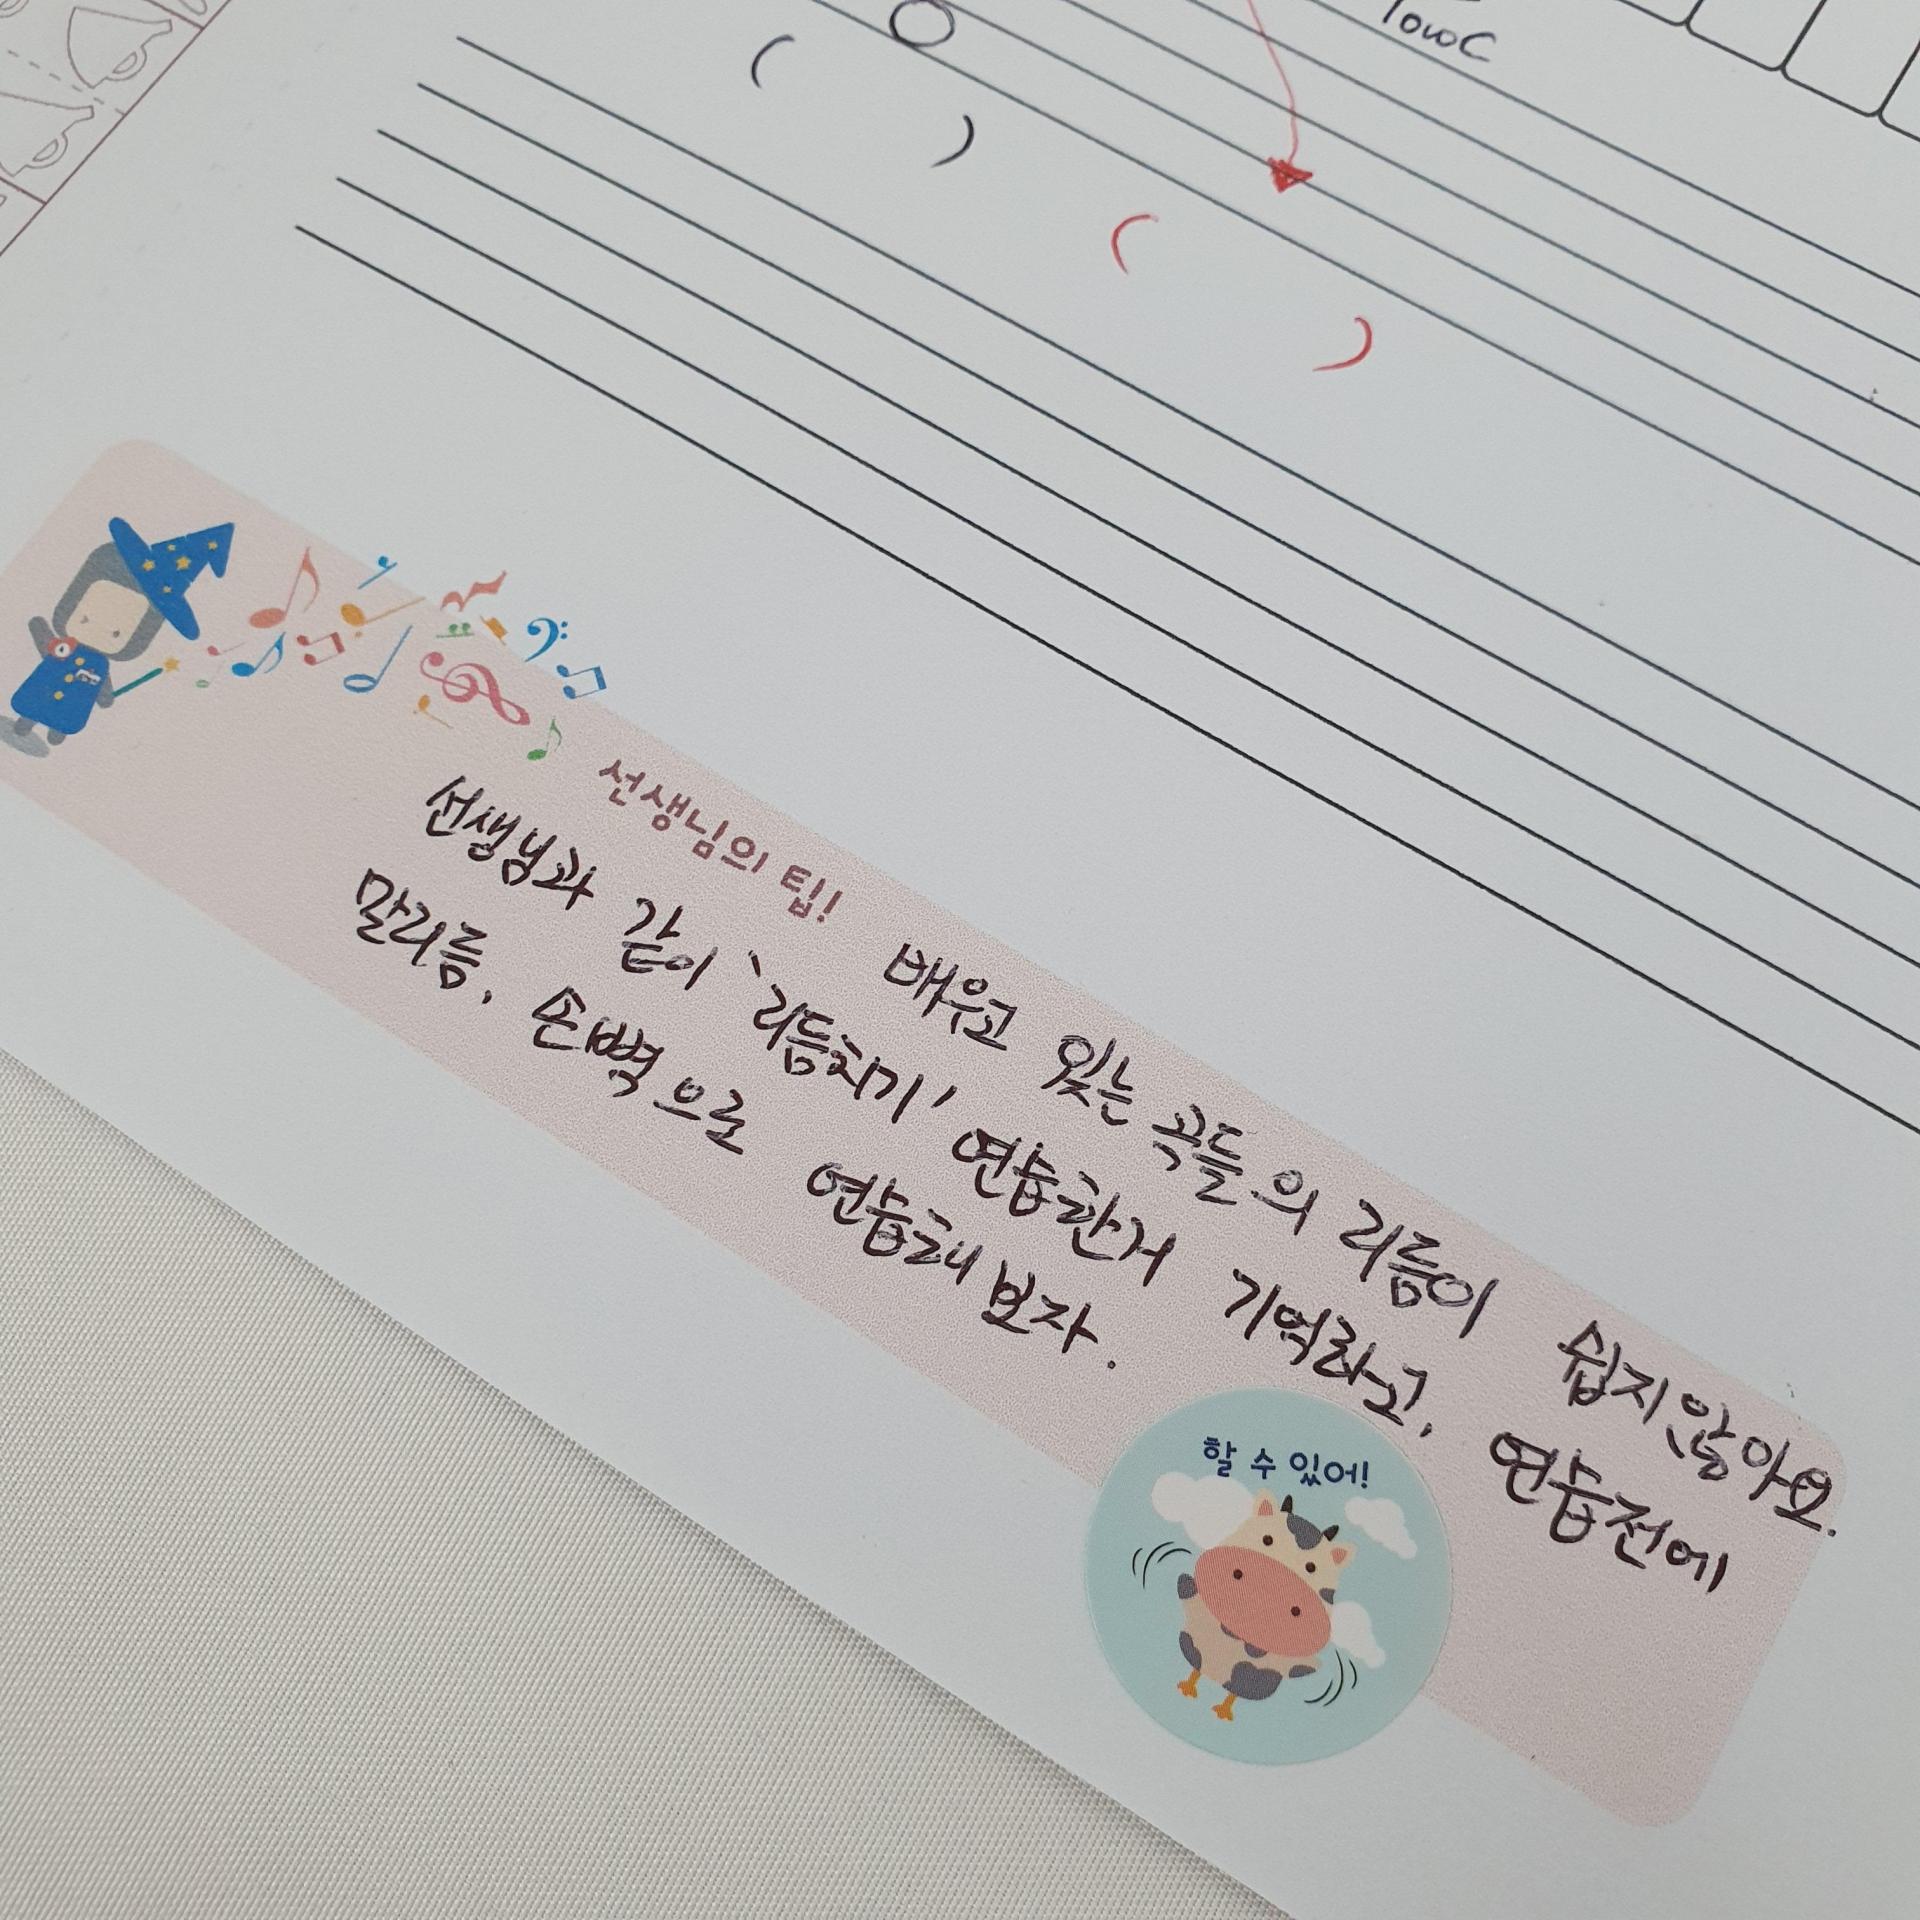 LowC
선생님의 팁!
배우고 있는 곡들의 리듬이 쉽지않아요.
선생님과 같이 '리듬치기' 연습한거 기억하고, 연습전에
말리듬, 손뼉으로 연습해보자.
할 수 있어!